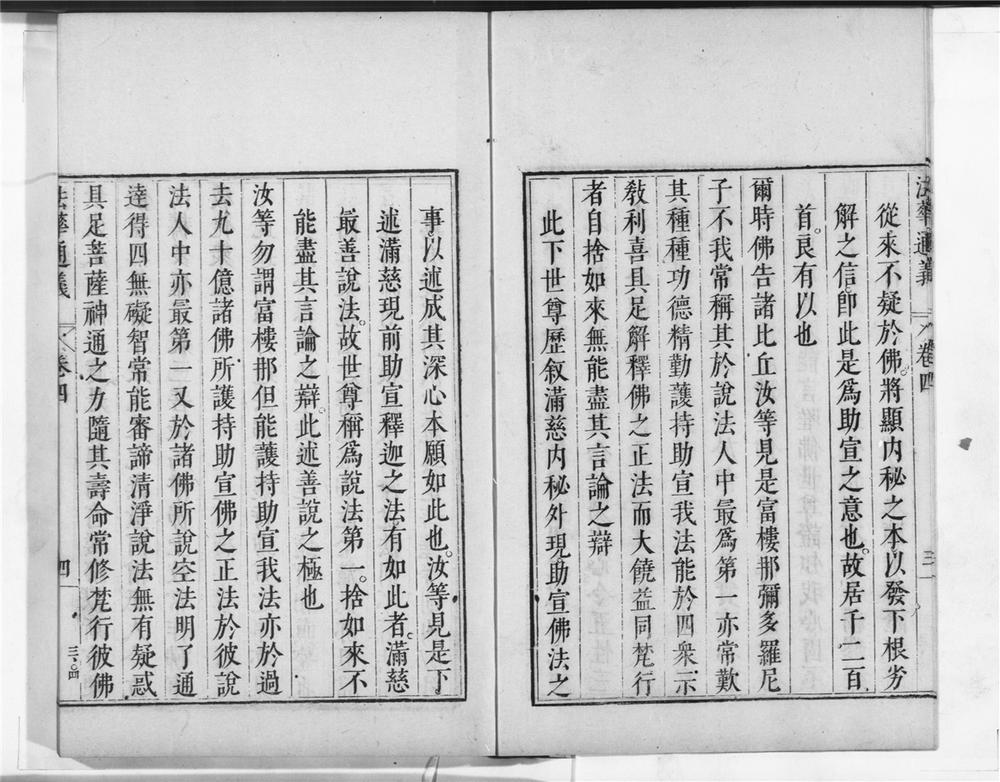 法華通義 卷四 三
從來不疑於佛將顯內秘之本以發下根劣
解之信卽此是爲助宣之意也故居千二百
首良有以也
爾時佛告諸比丘汝等見是富樓那彌多羅尼
子不我常稱其於說法人中最爲第一亦常歎
其種種功德精勤護持助宣我法能於四衆示
敎利喜具足解釋佛之正法而大饒益同梵行
者自捨如來無能盡其言論之辯
此下世尊歷叙滿慈內秘外現助宣佛法之
事以述成其深心本願如此也汝等見是下
述滿慈現前助宣釋迦之法有如此者滿慈
最善說法故世尊稱爲說法第一捨如來不
能盡其言論之辯此述善說之極也
汝等勿謂富樓那但能護持助宣我法亦於過
去九十億諸佛所護持助宣佛之正法於彼說
法人中亦最第一又於諸佛所說空法明了通
達得四無礙智常能審諦清淨說法無有疑惑
具足菩薩神通之力隨其壽命常修梵行彼佛
法華通義 卷四 四